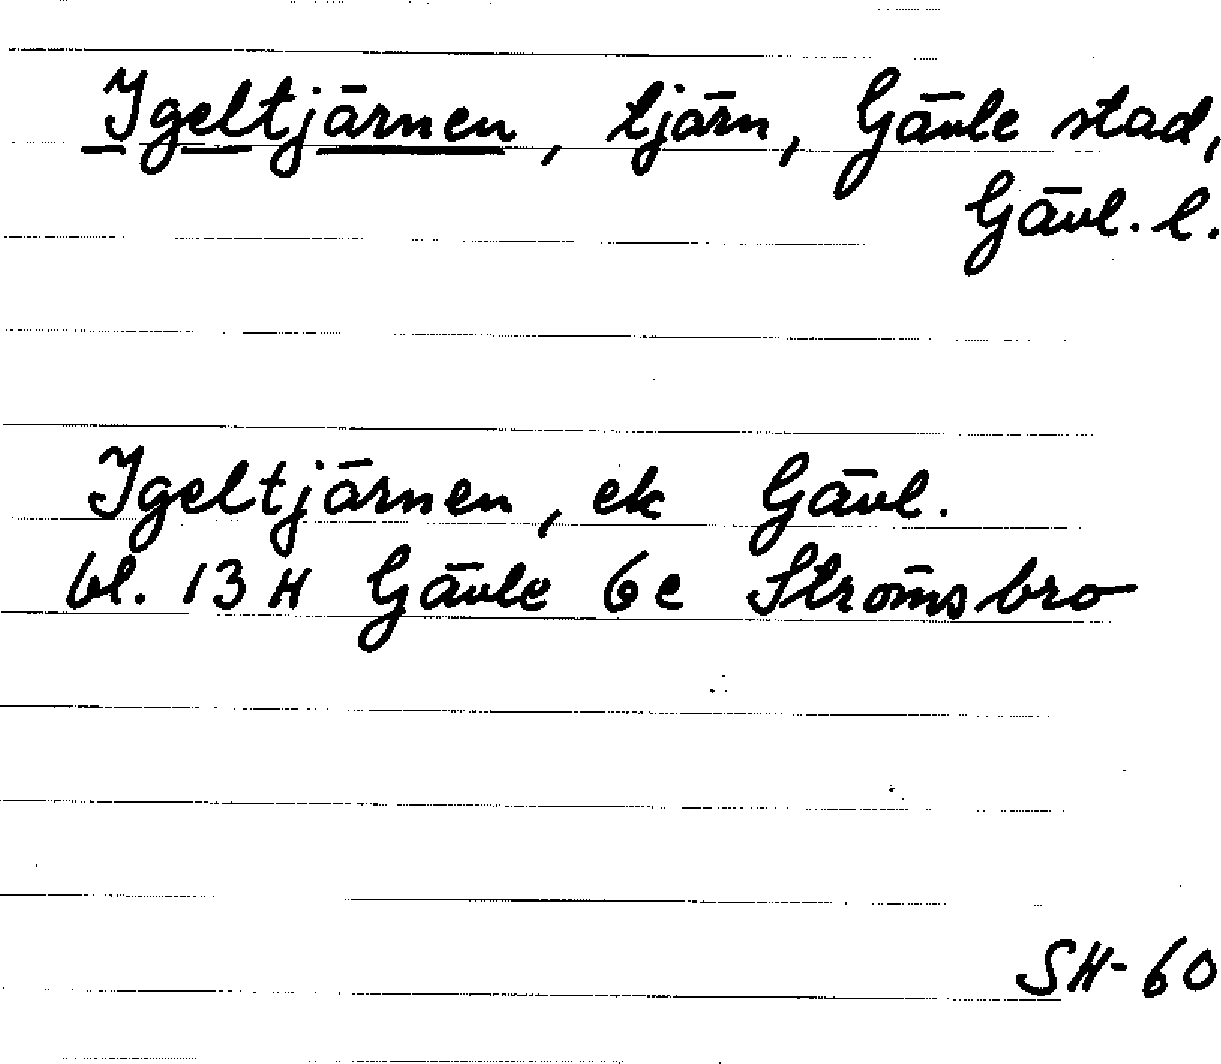 Igeltjärnen, tjärn, Gävle stad,
Gävl. l.
Igeltjärnen, ek Gävl.
bl. 13 H Gävle 6c Strömsbro
SH-60